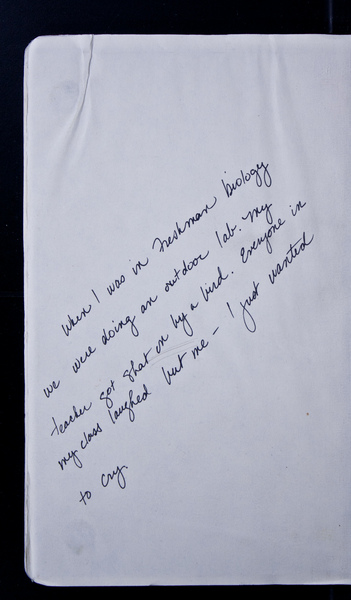 When I was in freshman biology
we were doing an outdoor lab. My
teacher got shat on by a bird. Everyone in
my class laughed but me - I just wanted
to cry.